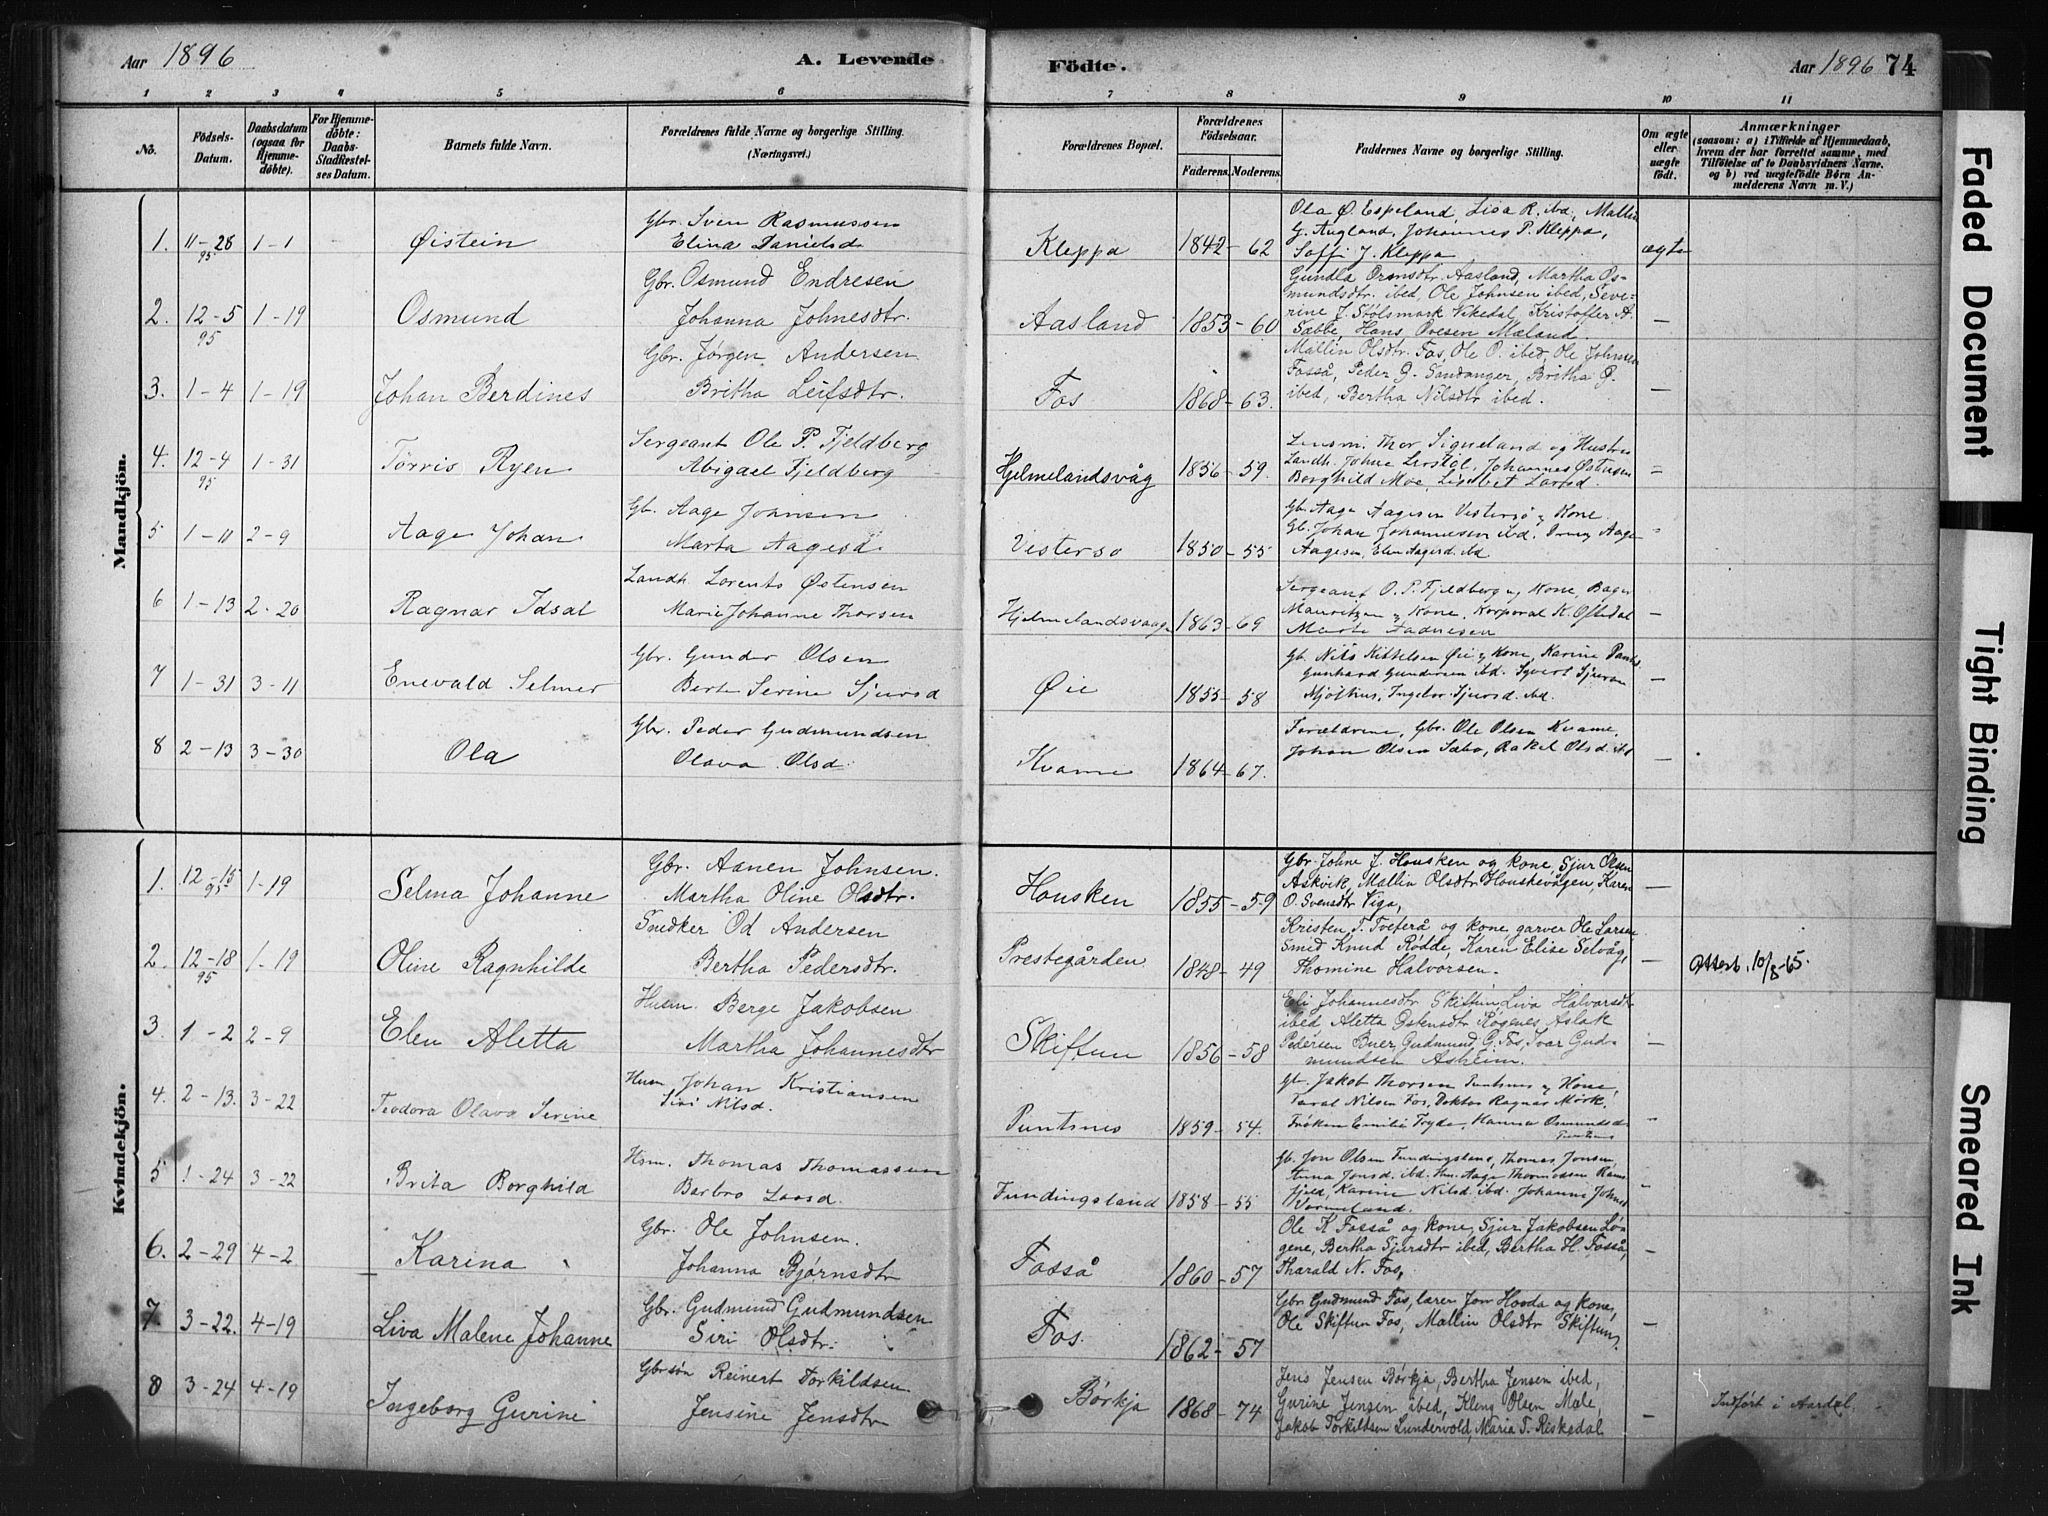 Aar 1896 A. Levende Födte. Aar 1896 74
1 2 3 4 5 6 7 8 9 10 11
No.
Fødsels-Datum.
Daabsdatum (ogsaa for Hjemmedöbte).
For Hjemmedöbte: Daabs-Stadfestelses Datum.
Barnets fulde Navn.
Forældrenes fulde Navne og borgerlige Stilling. (Næringsvei.)
Forældrenes Bopæl.
Forældrenes Födselsaar.
Faderens. Moderens.
Faddernes Navne og borgerlige Stilling.
Om ægte eller uægte födt.
Anmærkninger
(saasom: a) i Tilfælde af Hjemmedaab, hvem der har forrettet samme, med Tilföielse af to Daabsvidners Navne, og b) ved uægtefödte Börn Anmelderens Navn m. V.)
Mandkjön.
1. 11-28 95 1-1 Øistein
Gbr. Sven Rasmussen
Elina Danielsd
Kleppa 1842-62
Ola Ø. Espeland, Lisa R. ibd., Mallin
G. Augland, Johannes P. Kleppa,
Soffi J. Kleppa
ægte
2. 12-5 95 1-19 Osmund
Gbr. Osmund Endresen
Johanna Johnesdtr.
Aasland 1853-60
Gundla Ormsdtr. Aasland, Martha Os-
mundsdtr. ibed, Ole Johnsen ibed, Seve-
rine J. Stølsmark Vikedal, Kristoffer A.
Sabbe, Hans Ovesen Mæland.
3. 1-4 1-19 Johan Berdines
Gbr. Jørgen Andersen
Britha Leifsdtr.
Fos 1868-63.
Mallin Olsdtr. Fos, Ole O. ibed, Ole Johnsen
Fosså, Peder G. Sandanger, Britha P.
ibed, Bertha Nilsdtr ibed.
4. 12-4 95 1-31 Tørris Ryen
Sergeant Ole P. Fjeldberg
Abigael Fjeldberg
Hjelmelandsvåg 1856-59.
Lensm. Thor Signeland og Hustru
Landh. Johne Lerstöl, Johannes Østensen
Borghild Moe, Lisabet Larsd.
5 1-11 2-9 Aage Johan
Gb. Aage Johnsen
Marta Aagesd
Vestersø 1850-55
Gb. Aage Aagesen Vestersø & Kone
Gb. Johan Johannesen ibd. Aage
Aagesen, Elen Aagesd. ibd
6 1-13 2-20 Ragnar Idsal
Landh. Lorents Østensen
Marie Johanne Thorsen
Hjelmelandsvaagen 1863-69
Sergeant O. P. Fjeldberg & Kone, Bager
Mauritzen & Kone, Korporal K. Oftedal
7 1-31 3-11 Enevald Selmer
Gbr. Gunder Olsen
Berte Serine Sjursd
Øie 1855-58
Gb. Nils Kittelsen Øie & Kone, Karine
Gunhard Gundersen ibd. Syvert Sjursen
Mjølhus, Ingebor Sjursd. ibd.
8 2-13 3-30 Ola
Gbr. Peder Gudmundsen
Olava Olsd.
Kvame 1864-67.
Forældrene, Gbr. Ole Olsen Kvame,
Johan Olsen Sæbø, Rakel Olsd. ibd
Kvindekjön.
1. 12-15 95 1-19 Selma Johanne
Gbr. Aanen Johnsen.
Martha Oline Olsdtr.
Housken 1855-59
Gbr. Johne J. Housken og kone, Sjur Olsen
Askvik, Mallin Olsdtr Houskevågen, Karen
O. Svensdtr Viga,
2. 12-18 95 1-19 Oline Ragnhilde
Snedker Od Andersen
Bertha Pedersdtr.
Prestegården 1848-49
Kristen T. Tveterå og kone, garver Ole Larsen
Smid Knud Rødde, Karen Elise Selvåg,
Thomine Halvorsen.
Attest. 10/8-65.
3. 1-2 2-9 Elen Aletta
Husm. Berge Jakobsen
Martha Johannesdtr
Skiftun 1856-58
Eli Johannesdtr Skiftun, Liva Halvarsdtr
ibed, Aletta Østensdtr Røgenes, Aslak
Pedersen Buer, Gudmund G. Fos, Ivar Gud-
mundsen Asheim.
4. 2-13. 3-22 Teodora Olava Serine
Husm Johan Kristiansen
Siri Nilsd.
Puntsnes 1859-54.
Gb. Jakob Thorsen Puntsnes & Kone
Taral Nilsen Fos, Doktor Ragnar Mørk,
Frøken Emilie Tryde, Hanna Osmundsd
5 1-24 3-22 Brita Borghild
Hsm. Thomas Thomassen
Barbro Larsd.
Fundingsland 1858-55
Gb. Jon Olsen Fundingsland, Thomas Jonsen,
Anna Jonsd. ibd. Hm. Aage Thormodsen Rams-
fjeld, Karine Nilsd. ibd. Johanne Johnsd
Vormeland.
6. 2-29 4-2 Karina
Gbr. Ole Johnsen.
Johanna Bjørnsdtr
Fosså 1860-57
Ole K Fosså og kone, Sjur Jakobsen Lø-
gene, Bertha Sjursdtr ibed, Bertha H. Fosså,
Tharald N. Fos,
7. 3-22. 4-19 Liva Malene Johanne
Gbr. Gudmund Gudmundsen
Siri Olsdtr.
Fos. 1862-57
Gbr Gudmund Fos, lærer Jon Hovda og kone,
Ole Skiftun Fos, Mallin Olsdtr Skiftun,
8 3-24 4-19 Ingeborg Gurine
Gbrsøn Reinert Torkildsen
Jensine Jensdtr
Børkja 1868-74
Jens Jensen Børkja, Bertha Jensen ibed,
Gurine Jensen ibed, Kleng Olsen Mæle,
Jakob Torkildsen Lundervold, Maria T. Riskedal
Indført i Aardal.
Faded Document
Tight Binding
Smeared Ink